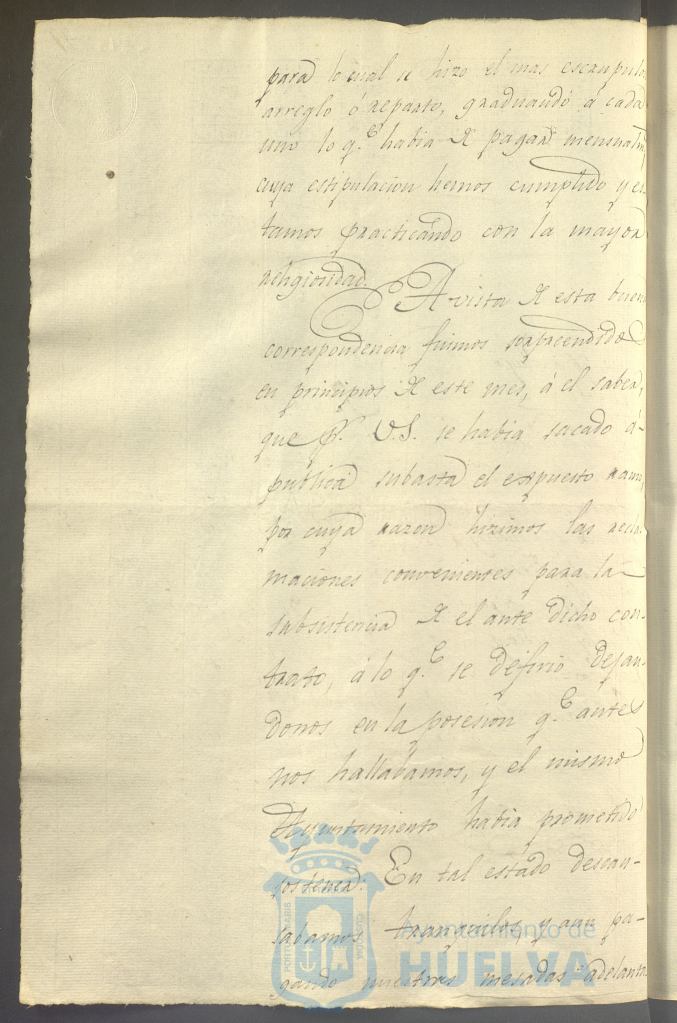 para lo cual se hizo el mas escrupulo
arreglo ó reparto, graduando á cada
uno lo q.e habia de pagar mensualm
cuya estipulacion hemos cumplido y es
tamos practicando con la mayor
religiosidad.
A vista de esta buen
correspondencia fuimos sorprendidos
en principios de este mes, á el saber,
que p.r V.S. se habia sacado á
publica subasta el expuesto ramo,
por cuya razon hizimos las recla
maciones convenientes para la
subsistencia de el ante dicho con-
trato, á lo q.e se defirio dejan-
donos en la posesion q.e antes
nos hallabamos, y el mismo
Ayuntamiento habia prometido
sostener. En tal estado descan-
sabamos tranquilos, y aun pa-
gando nuestras mesadas adelanta
Ayuntamiento de
HUELVA
PORTUS MARIS